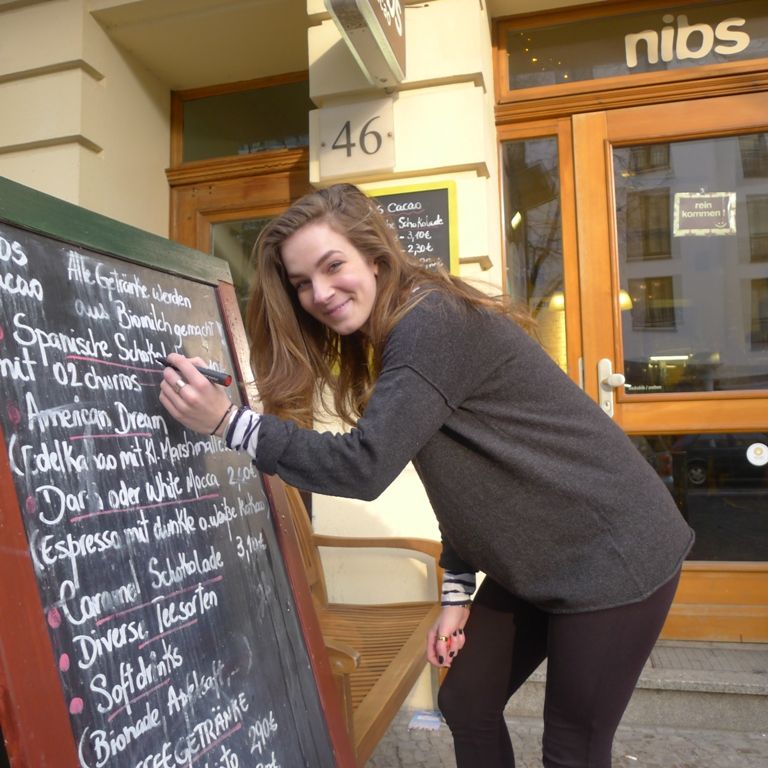 nibs
46
rein
kommen!
s Cacao
Schokolade
3,10€
2,30€
cacao
Alle Getränke werden
aus Biomilch gemacht
Spanische
mit 02 churros
American Dream
(Edelkakao mit Kl. Marshmallows
Dark oder White Mocca 2,90€
(Espresso mit dunkle o. weiße Kakao
Caramel Schokolade 3,10€
Diverse Teesorten
Softdrinks
(Bionade Apfelsaft...
KAFFEEGETRÄNKE
2,90€